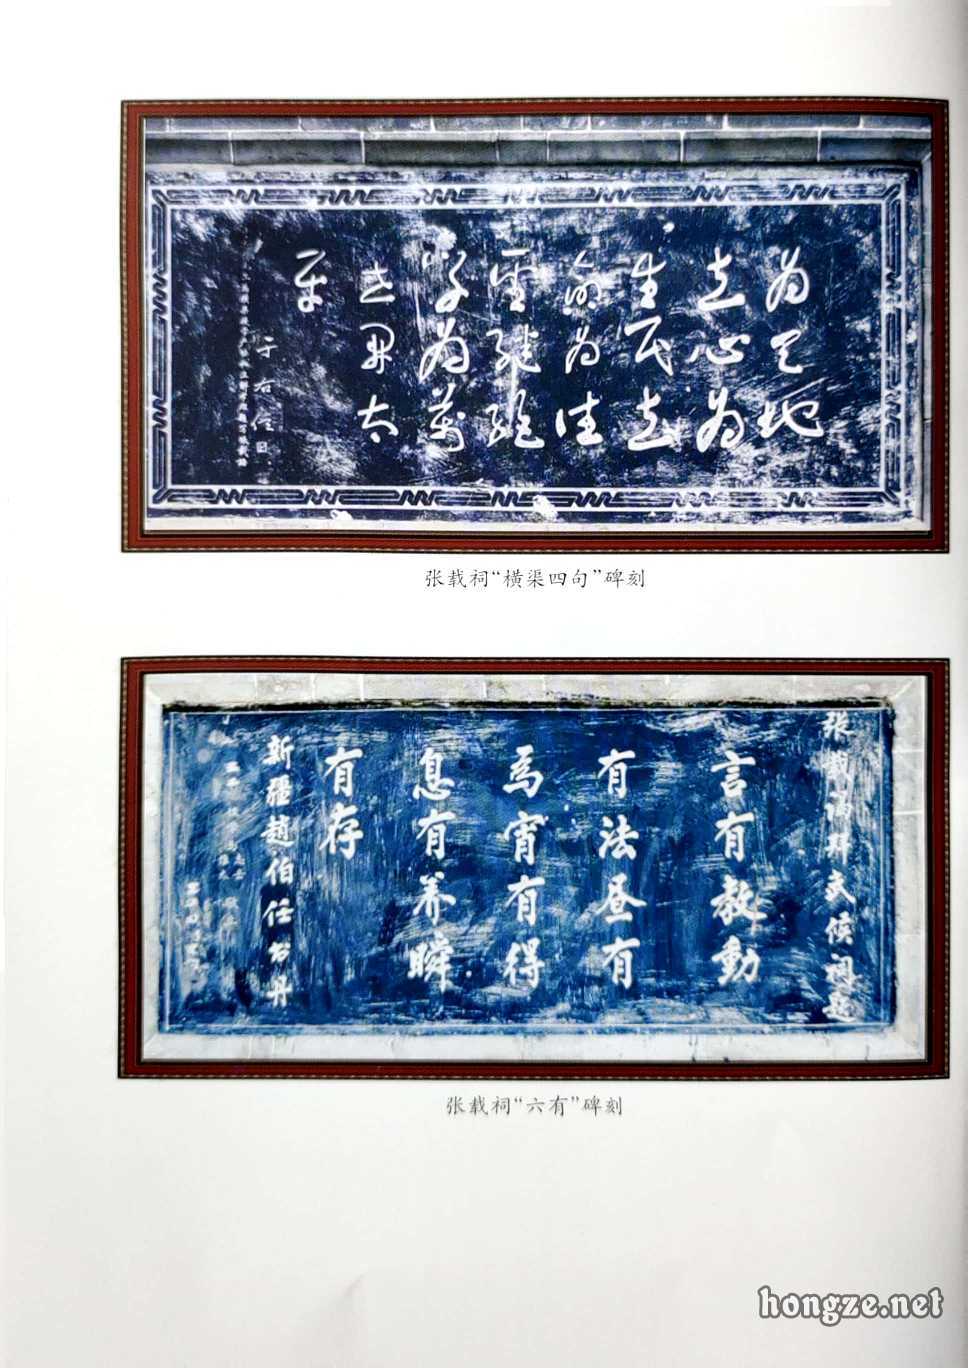 为天地
立心为
生民立
命为往
圣继绝
学为萬
世开太
平
于右任
张载祠“横渠四句”碑刻
言有教動
有法昼有
為宵有得
息有养瞬
有存
新疆趙伯任书丹
张载祠“六有”碑刻
hongze.net